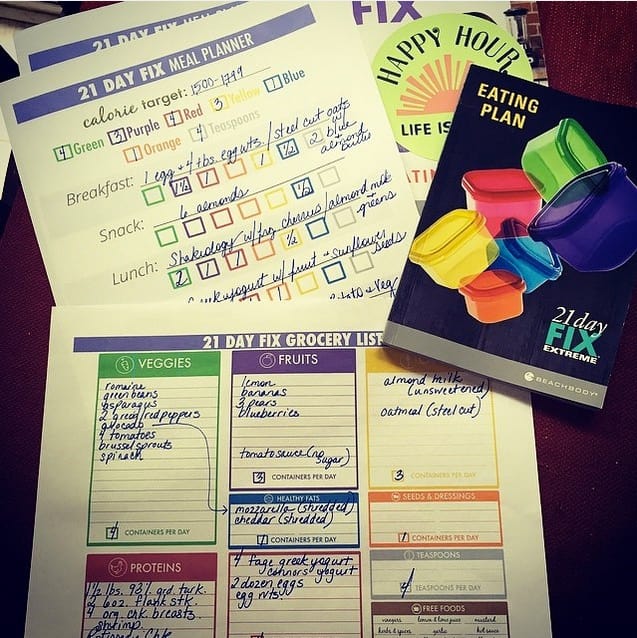 21 DAY FIX MEAL PLANNER
21 DAY FIX MEAL PLANNER
calorie target: 1500-1799
4 Green 3 Purple 4 Red 3 Yellow 1 Blue
1 Orange 4 Teaspoons
Breakfast: 1 egg + 4 tbs. egg wts / steel cut oats
1½ 1 1 ½ 2 blue
almond
Snack: 6 almonds
½
Lunch: Shakeology w/ frz cherries / almond milk
2 1 1 ½ greens
Greek yogurt w/ fruit + sunflower seeds
Potato + veg
FIX
HAPPY HOUR
LIFE IS
EATING
PLAN
21 day
FIX
EXTREME
BEACHBODY
21 DAY FIX GROCERY LIST
VEGGIES
romaine
green beans
asparagus
2 green/red peppers
avocado
4 tomatoes
brussel sprouts
spinach
4 CONTAINERS PER DAY
FRUITS
lemon
bananas
3 pears
blueberries
tomato sauce (no
sugar)
3 CONTAINERS PER DAY
almond milk
(unsweetened)
oatmeal (steel cut)
3 CONTAINERS PER DAY
HEALTHY FATS
mozzarella (shredded)
cheddar (shredded)
1 CONTAINERS PER DAY
SEEDS & DRESSINGS
1 CONTAINERS PER DAY
PROTEINS
1½ lbs. 93% grd. turk.
2 6oz. flank stk.
4 org. chk. breasts
shrimp
Rotisserie Chk
4 Fage greek yogurt
2 dozen eggs
egg wts.
TEASPOONS
4 TEASPOONS PER DAY
FREE FOODS
vinegars lemon & lime juice mustard
herbs & spices garlic hot sauce